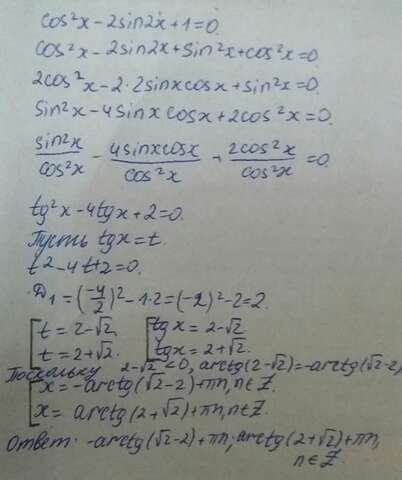 cos²x - 2sin2x + 1 = 0.
cos²x - 2sin2x + sin²x + cos²x = 0.
2cos²x - 2·2sinxcosx + sin²x = 0.
sin²x - 4sinxcosx + 2cos²x = 0.
sin²x/cos²x - 4sinxcosx/cos²x + 2cos²x/cos²x = 0.
tg²x - 4tgx + 2 = 0.
Пусть tgx = t.
t² - 4t + 2 = 0.
Д₁ = (-4/2)² - 1·2 = (-2)² - 2 = 2.
[t = 2-√2 [tgx = 2-√2
[t = 2+√2. [tgx = 2+√2.
Поскольку 2-√2 < 0, arctg(2-√2) = -arctg(√2-2)
[x = -arctg(√2-2) + πn, n∈Z.
[x = arctg(2+√2) + πn, n∈Z.
Ответ: -arctg(√2-2) + πn; arctg(2+√2) + πn,
n∈Z.